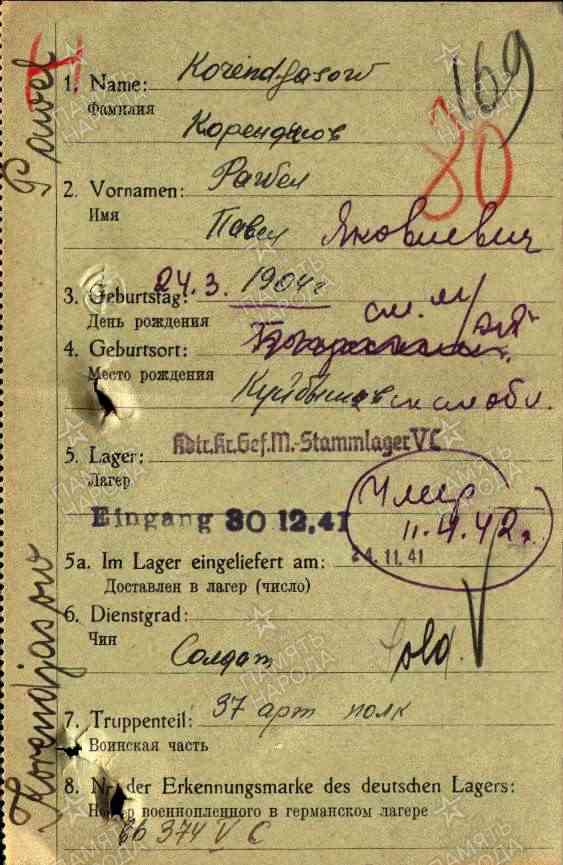 169
80
1. Name: Korendjasow
Фамилия
Корендясов
Pawel
2. Vornamen: Pawel
Имя
Павел Яковлевич
3. Geburtstag: 24.3. 1904г
День рождения
см. м/
4. Geburtsort:
Место рождения
Куйбышевская обл.
Kdtr.Kr.Gef.M.-Stammlager VC
5. Lager:
Лагер
Eingang 30 12.41
Умер
11.4.42г.
24.11.41
5a. Im Lager eingeliefert am:
Доставлен в лагер (число)
6. Dienstgrad:
Чин
Солдат Sold.
7. Truppenteil: 37 арт полк
Воинская часть
Korendjasow
8. Nr. der Erkennungsmarke des deutschen Lagers:
Номер военнопленного в германском лагере
374 V C
ПАМЯТЬ НАРОДА